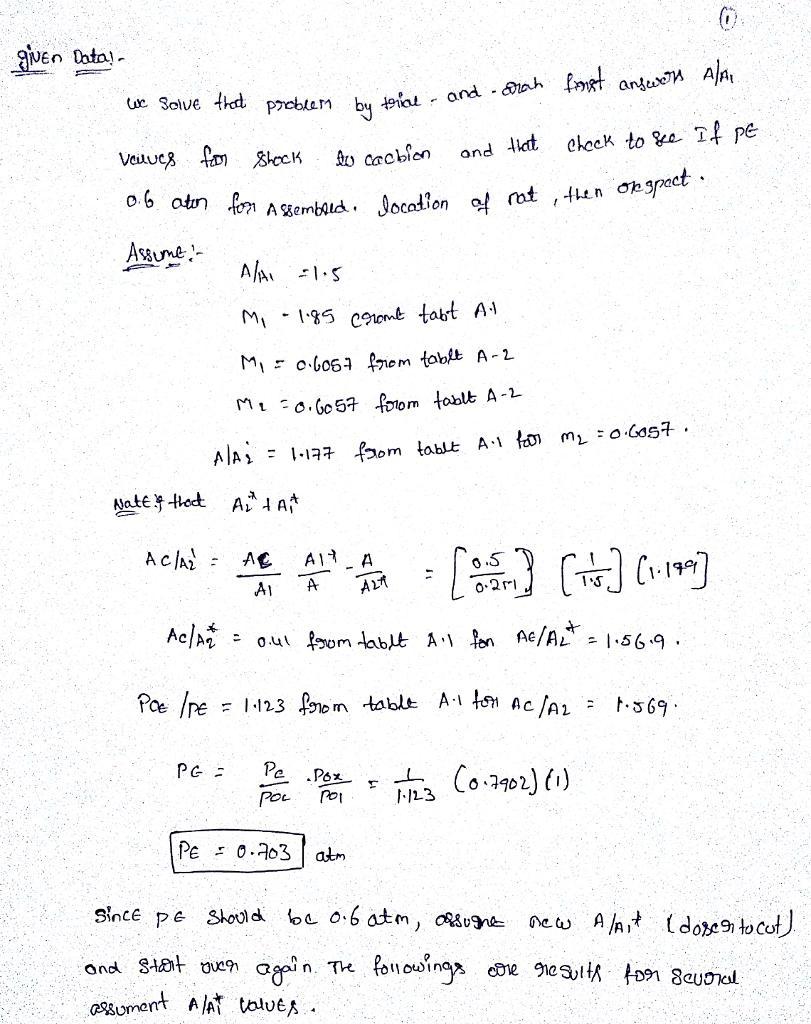 1
given Data:-
we solve that problem by trial - and - first answers A/A1
veuves for shock and that check to see If PE
0.6 atm for Assembled. location of not, then
Assume:-
A/A1 = 1.5
M1 - 1.85 tabt A.1
M1 = 0.6057 from table A-2
M2 = 0.6057 from table A-2
A/A2 = 1.177 from table A.1 for m2 = 0.6057.
Note that A2* ≠ A1*
AC/A2 = AE/A1 A1*/A - A/A2* = [0.5/] [1/1.5]
Ac/A2* = 0.41 from table A.1 for AE/A2* = 1.56.9.
POE/PE = 1.123 from table A.1 for AC/A2 = 1.569.
PG = PC/POC . POX/PO1 = 1/1.123 (0.7902)(1)
PE = 0.703 atm
Since PE should be 0.6 atm, assume new A/A1*
and start over again. The followings are results for several
assument A/A* values.